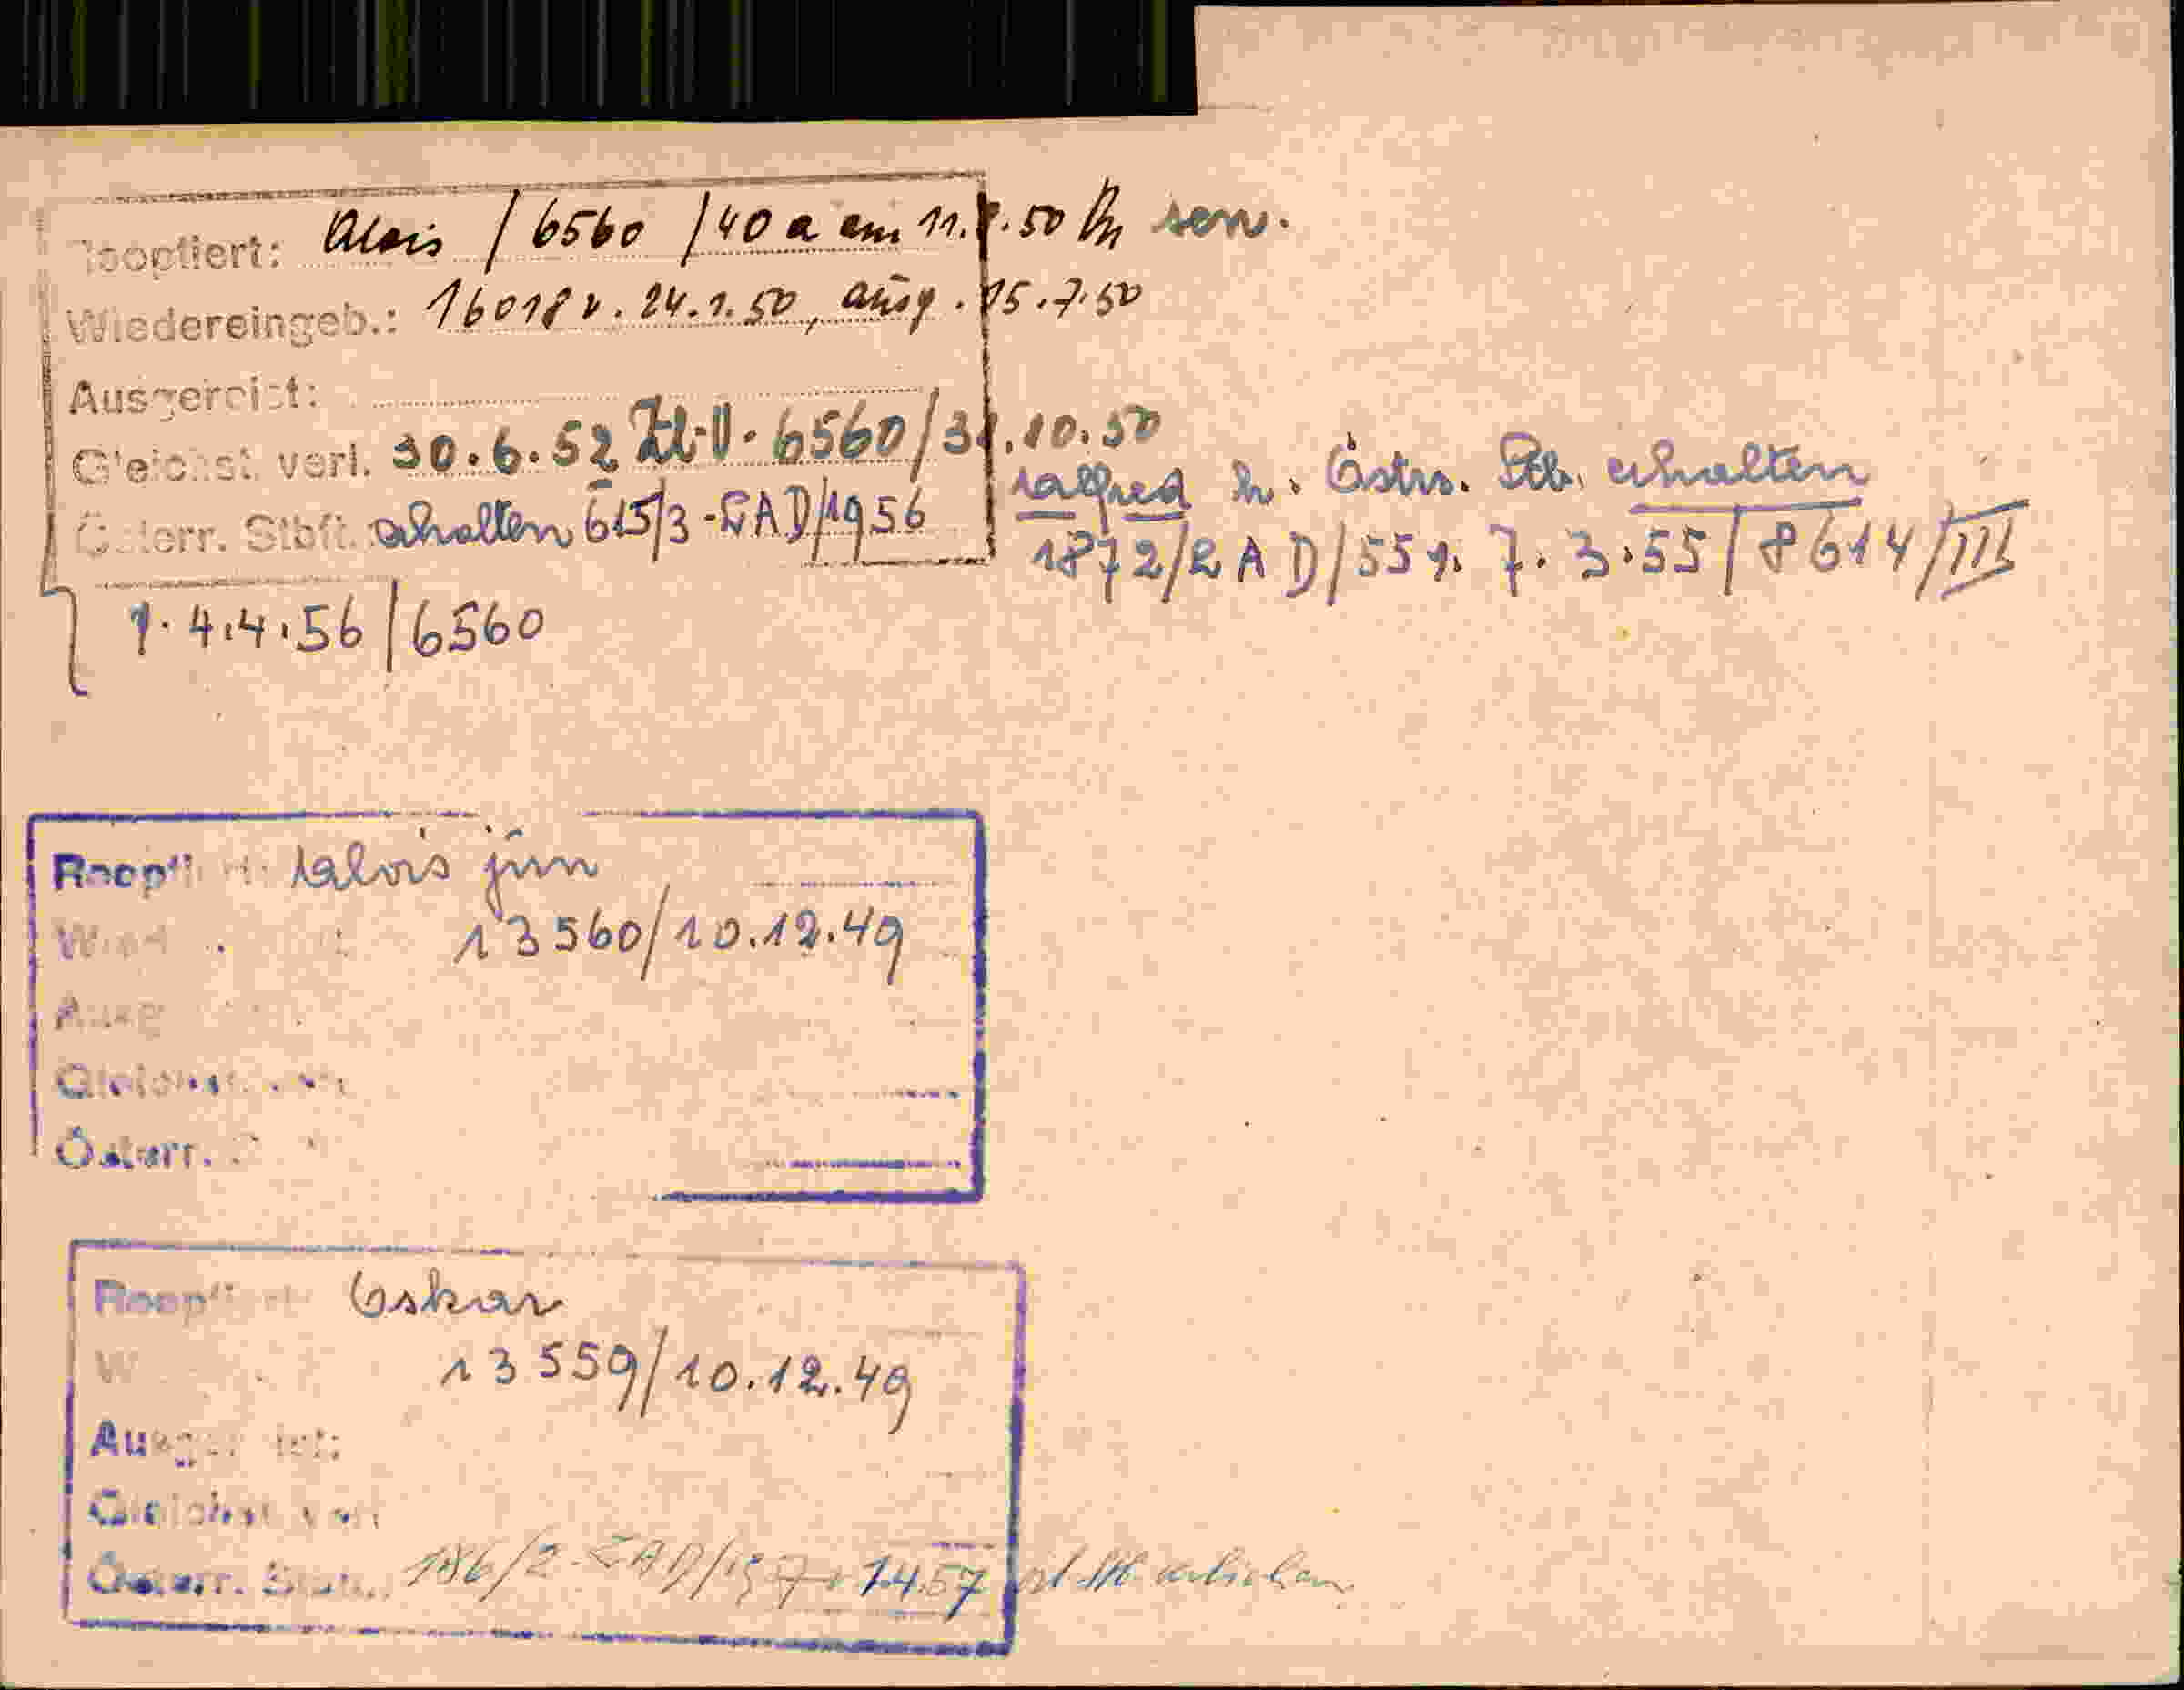 Reoptiert: Alois / 6560 / 40 a am 11.7.50 sen.
Wiedereingeb.: 16018 v. 24.1.50, ausg. 15.7.50
Ausgereist:
Gleichst. verl. 30.6.52 Zl. 6560/31.10.50
Österr. Stbft. erhalten 615/3-EAD/1956
Alfred h. Östrr. Stb. erhalten
1872/2 A D/55 v. 7.3.55 / 8614/III
v. 4.4.56 / 6560
Reopt Alois jun
W 13560/10.12.49
Ausg
Gleichst.
Österr.
Reopt Oskar
W 13559/10.12.49
Ausgereist:
Gleichst verl
Österr. Stb. 186/2-EAD/57 1.4.57